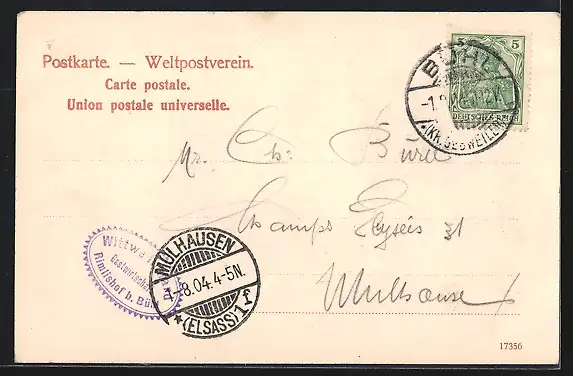 Postkarte. — Weltpostverein.
Carte postale.
Union postale universelle.
5
DEUTSCHES REICH
BÜHL
(KR. GEBWEILER)
Mr. Ch. Büre
Champs Elyseis 31
Mulhouse
Wittwe
Gastwirtschaft
Rimlishof b. Bühl
MÜLHAUSEN
1-8.04.4-5N.
*(ELSASS)1f
17356